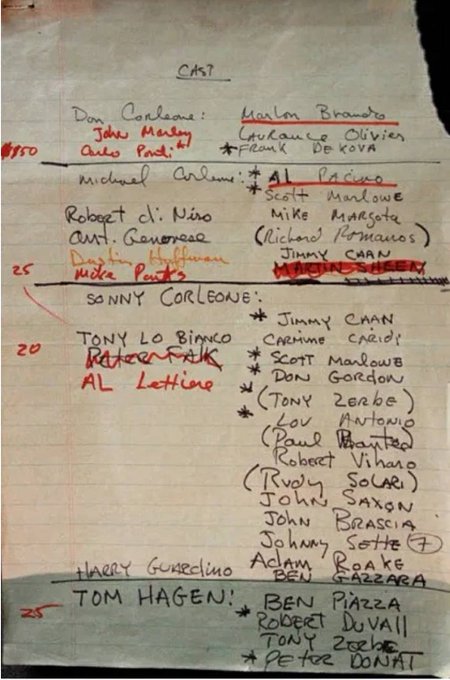 CAST
Don Corleone: Marlon Brando
John Marley Laurance Olivier
$150 Carlo Ponti * FRANK DEKOVA
Michael Corleone: * AL PACINO
* Scott Marlowe
Robert di Niro MIKE MARGOTA
Ant. Genovese (Richard Romanos)
Dustin Hoffman JIMMY CAAN
25 Mike Parks MARTIN SHEEN
SONNY CORLEONE:
* JIMMY CAAN
TONY LO BIANCO CARMINE CARIDI
20 Peter FALK * SCOTT MARLOWE
AL Lettiere * DON GORDON
* (TONY ZERBE)
* LOU ANTONIO
(Paul Banteo)
Robert Viharo
(RUDY SOLARI)
JOHN SAXON
JOHN BRASCIA
Johnny Sette 7
ADAM ROAKE
HARRY GUARDINO BEN GAZZARA
TOM HAGEN: BEN PIAZZA
25 * ROBERT DUVALL
TONY ZERBE
* PETER DONAT